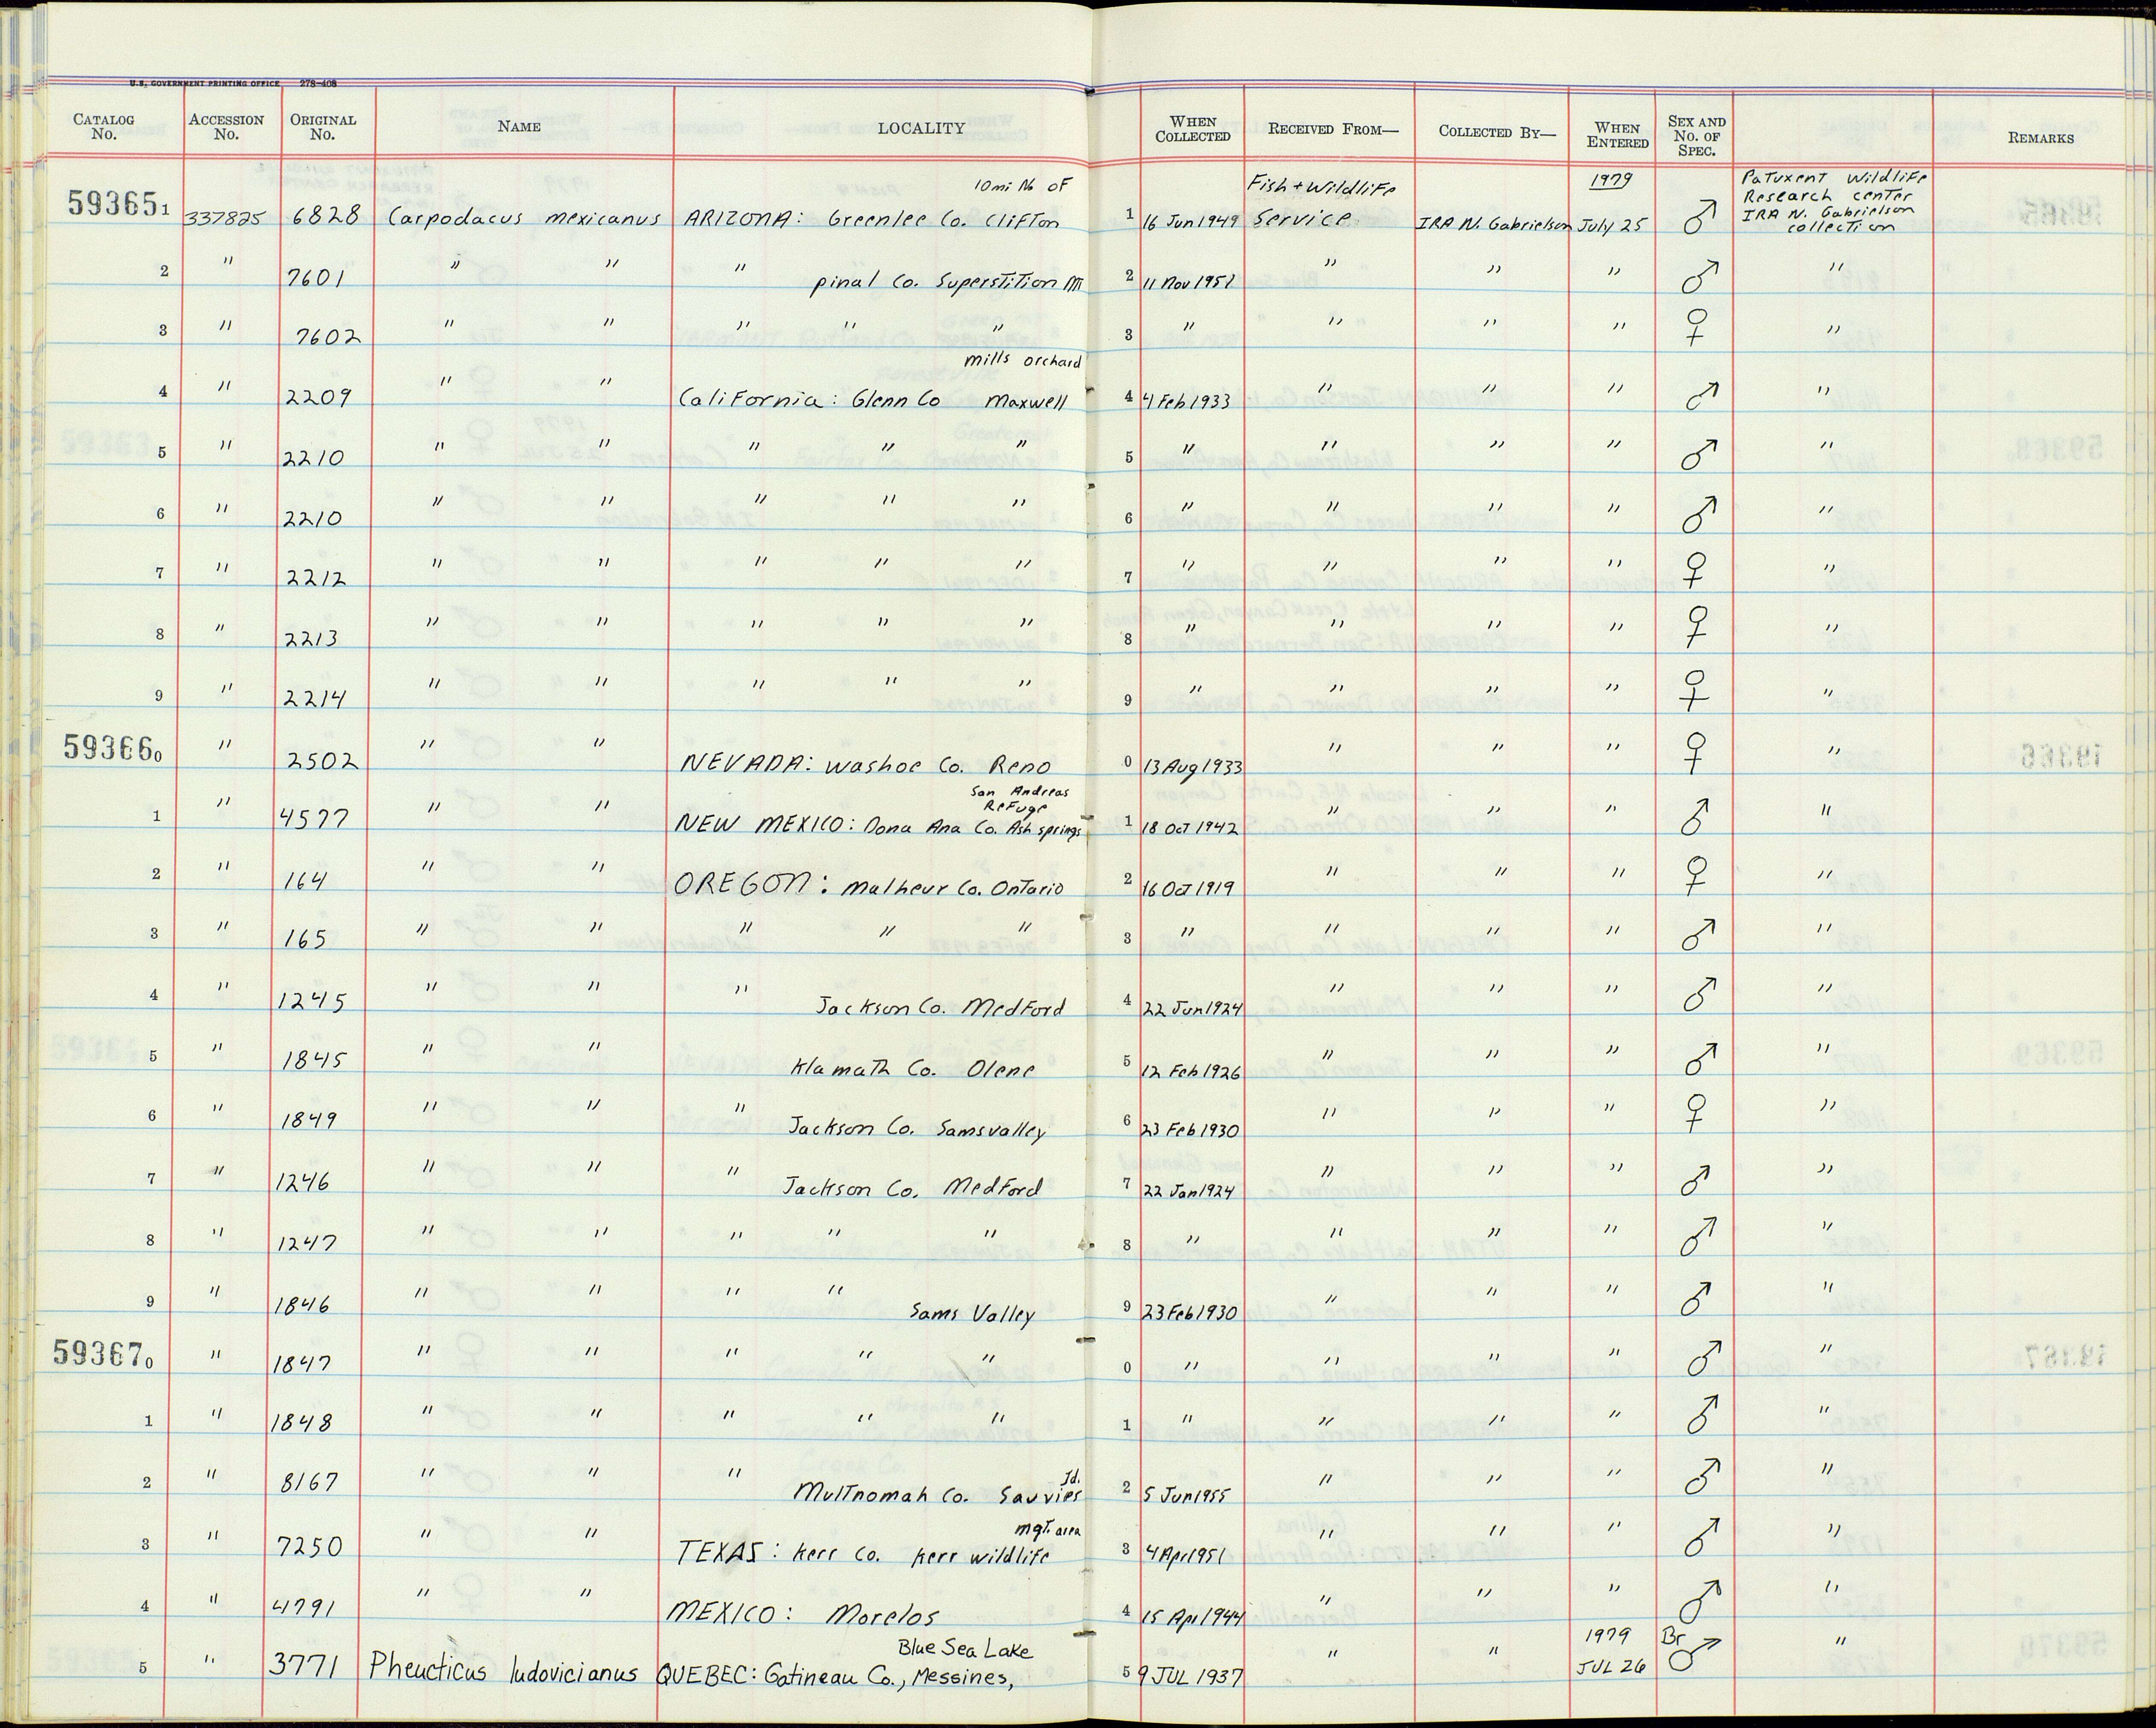 U.S. GOVERNMENT PRINTING OFFICE 278-408
CATALOG No. ACCESSION No. ORIGINAL No. NAME LOCALITY WHEN COLLECTED RECEIVED FROM— COLLECTED BY— WHEN ENTERED SEX AND No. OF SPEC. REMARKS
10mi N. of Fish + Wildlife 1979 Patuxent Wildlife Research center
593651 337825 6828 Carpodacus mexicanus ARIZONA: Greenlee Co. Clifton 1 16 Jun 1949 Service IRA N. Gabrielson July 25 ♂ IRA N. Gabrielson collection
2 " 7601 " " " pinal Co. Superstition M 2 11 Nov 1952 " " " ♂ "
3 " 7602 " " " " " 3 " " " " ♀ "
mills orchard
4 " 2209 " " California: Glenn Co Maxwell 4 4 Feb 1933 " " " ♂ "
5 " 2210 " " " " " 5 " " " " ♂ "
6 " 2210 " " " " " 6 " " " " ♂ "
7 " 2212 " " " " " 7 " " " " ♀ "
8 " 2213 " " " " " 8 " " " " ♀ "
9 " 2214 " " " " " 9 " " " " ♀ "
593660 " 2502 " " NEVADA: Washoe Co. Reno 0 13 Aug 1933 " " " ♀ "
San Andreas
Refuge
1 " 4577 " " NEW MEXICO: Dona Ana Co. Ash springs 1 18 Oct 1942 " " " ♂ "
2 " 164 " " OREGON: malheur Co. Ontario 2 16 Oct 1919 " " " ♀ "
3 " 165 " " " " " 3 " " " " ♂ "
4 " 1245 " " " Jackson Co. Medford 4 22 Jun 1924 " " " ♂ "
5 " 1845 " " Klamath Co. Olene 5 12 Feb 1926 " " " ♂ "
6 " 1849 " " " Jackson Co. Samsvalley 6 23 Feb 1930 " " " ♀ "
7 " 1246 " " " Jackson Co. Medford 7 22 Jan 1924 " " " ♂ "
8 " 1247 " " " " " 8 " " " " ♂ "
9 " 1846 " " " " Sams Valley 9 23 Feb 1930 " " " ♂ "
593670 " 1847 " " " " " 0 " " " " ♂ "
1 " 1848 " " " " " 1 " " " " ♂ "
Id.
2 " 8167 " " " Multnomah Co. Sauvies 2 5 Jun 1955 " " " ♂ "
mgt. area
3 " 7250 " " TEXAS: Kerr Co. Kerr wildlife 3 4 Apr 1951 " " " ♂ "
4 " 4791 " " MEXICO: Morelos 4 15 Apr 1944 " " " ♂ "
Blue Sea Lake 1979 Br
5 " 3771 Pheucticus ludovicianus QUEBEC: Gatineau Co., Messines, 5 9 JUL 1937 " " JUL 26 ♂ "